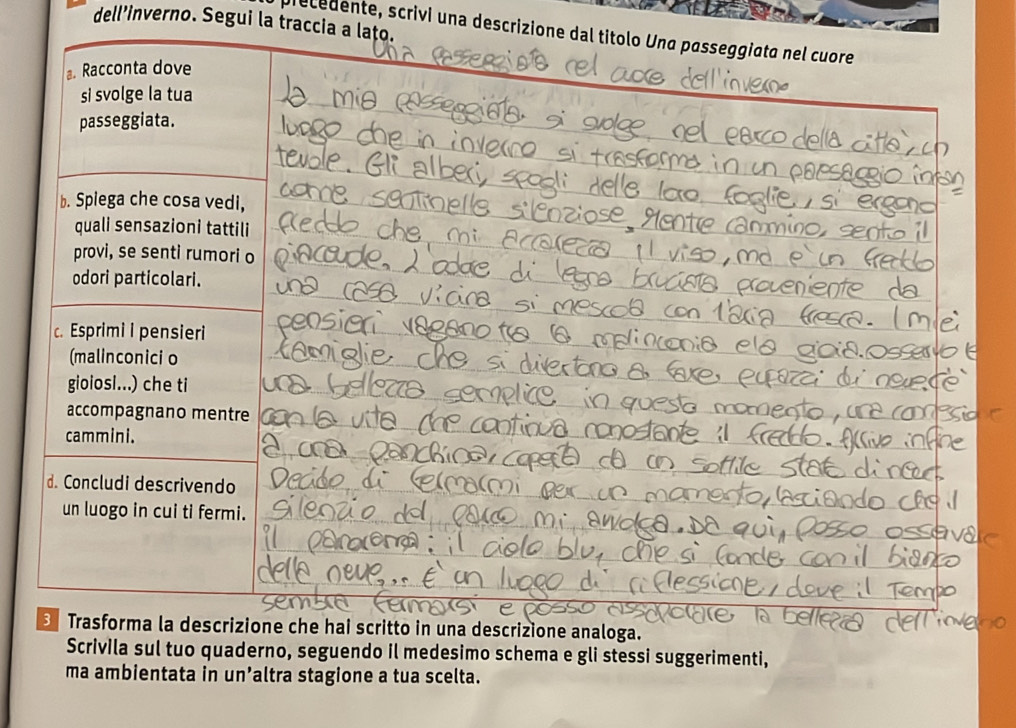 precedente, scrivi una descrizione dal titolo Una passeggiata nel cuore
dell'inverno. Segui la traccia a lato.
Una passeggiata nel cuore dell'inverno
a. Racconta dove
si svolge la tua
passeggiata.
b. Spiega che cosa vedi,
quali sensazioni tattili
provi, se senti rumori o
odori particolari.
c. Esprimi i pensieri
(malinconici o
gioiosi...) che ti
accompagnano mentre
cammini.
d. Concludi descrivendo
un luogo in cui ti fermi.
la mia passeggiata. si svolge nel parco della città, un
luogo che in inverno si trasforma in un paesaggio incan
tevole. Gli alberi, spogli delle loro foglie, si ergono
come sentinelle silenziose, Mentre cammino, sento il
freddo che mi accarezza il viso, ma è un freddo
piacevole. L'odore di legna bruciata proveniente da
una casa vicina si mescola con l'aria fresca. I miei
pensieri vagano tra la malinconia e la gioia. Osservo le
famiglie che si divertono a fare pupazzi di neve. C'è
una bellezza semplice in questo momento, una connessione
con la vita che continua nonostante il freddo. Arrivo infine
a una panchina, coperta da un sottile strato di neve.
Decido di fermarmi per un momento, lasciando che il
silenzio del parco mi avvolga. Da qui, posso osservare
il panorama: il cielo blu, che si fonde con il bianco
della neve... È un luogo di riflessione, dove il Tempo
sembra fermarsi e posso assaporare la bellezza dell'inverno
3 Trasforma la descrizione che hai scritto in una descrizione analoga.
Scrivila sul tuo quaderno, seguendo il medesimo schema e gli stessi suggerimenti,
ma ambientata in un'altra stagione a tua scelta.